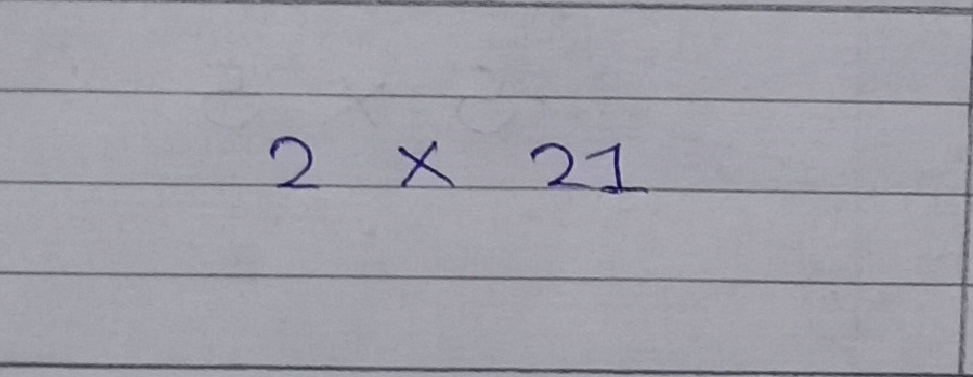 2 × 21